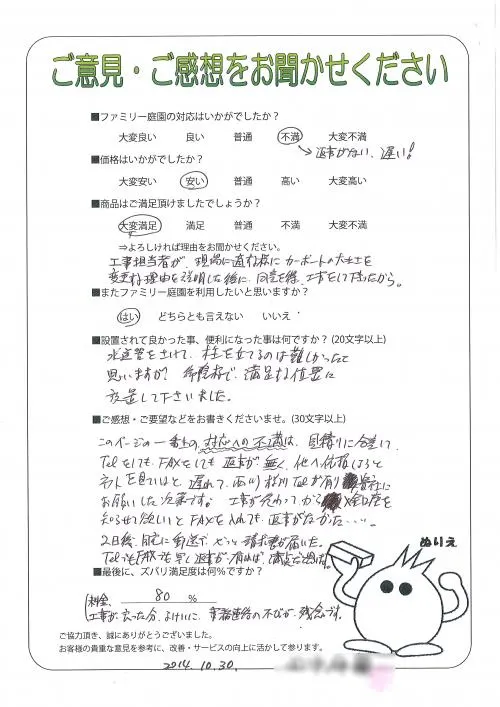 ご意見・ご感想をお聞かせください
■ファミリー庭園の対応はいかがでしたか？
大変良い 良い 普通 不満 大変不満
→返事がない、遅い!
■価格はいかがでしたか？
大変安い 安い 普通 高い 大変高い
■商品はご満足頂けましたでしょうか？
大変満足 満足 普通 不満 大変不満
⇒よろしければ理由をお聞かせください。
工事担当者が、現場に適な様にカーポートの大きさを
変更な理由を説明した後に、同意を得、工事をして下さったから。
■またファミリー庭園を利用したいと思いますか？
はい どちらとも言えない いいえ
■設置されて良かった事、便利になった事は何ですか？(20文字以上)
水道管をさけて、柱を立てるのは難しかったと
思いますが、御陰様で、満足な位置に
設置して下さいました。
■ご感想・ご要望などをお書きくださいませ。(30文字以上)
このページの一番上の、対応への不満は、見積りに会して、
Telをしても、FAXをしても 返事が無く、他へ依頼しようと
ネットを見ていると、遅れて、 Telが有り 貴社に
お願いした次第です。工事が終わってから 金口座を
知らせて欲しいとFAXを入れても、返事がなかった・・・・。
2日後、自宅に郵送で、やっと請求書が届いた。
TelでもFAXでも早く返事が有れば、満点と思います。
■最後に、ズバリ満足度は何％ですか？
80 %
工事が良かった分、よけいに、事務連絡の不びが、残念です。
ぬりえ
ご協力頂き、誠にありがとうございました。
お客様の貴重な意見を参考に、改善・サービスの向上に活かして参ります。
2014.10.30.